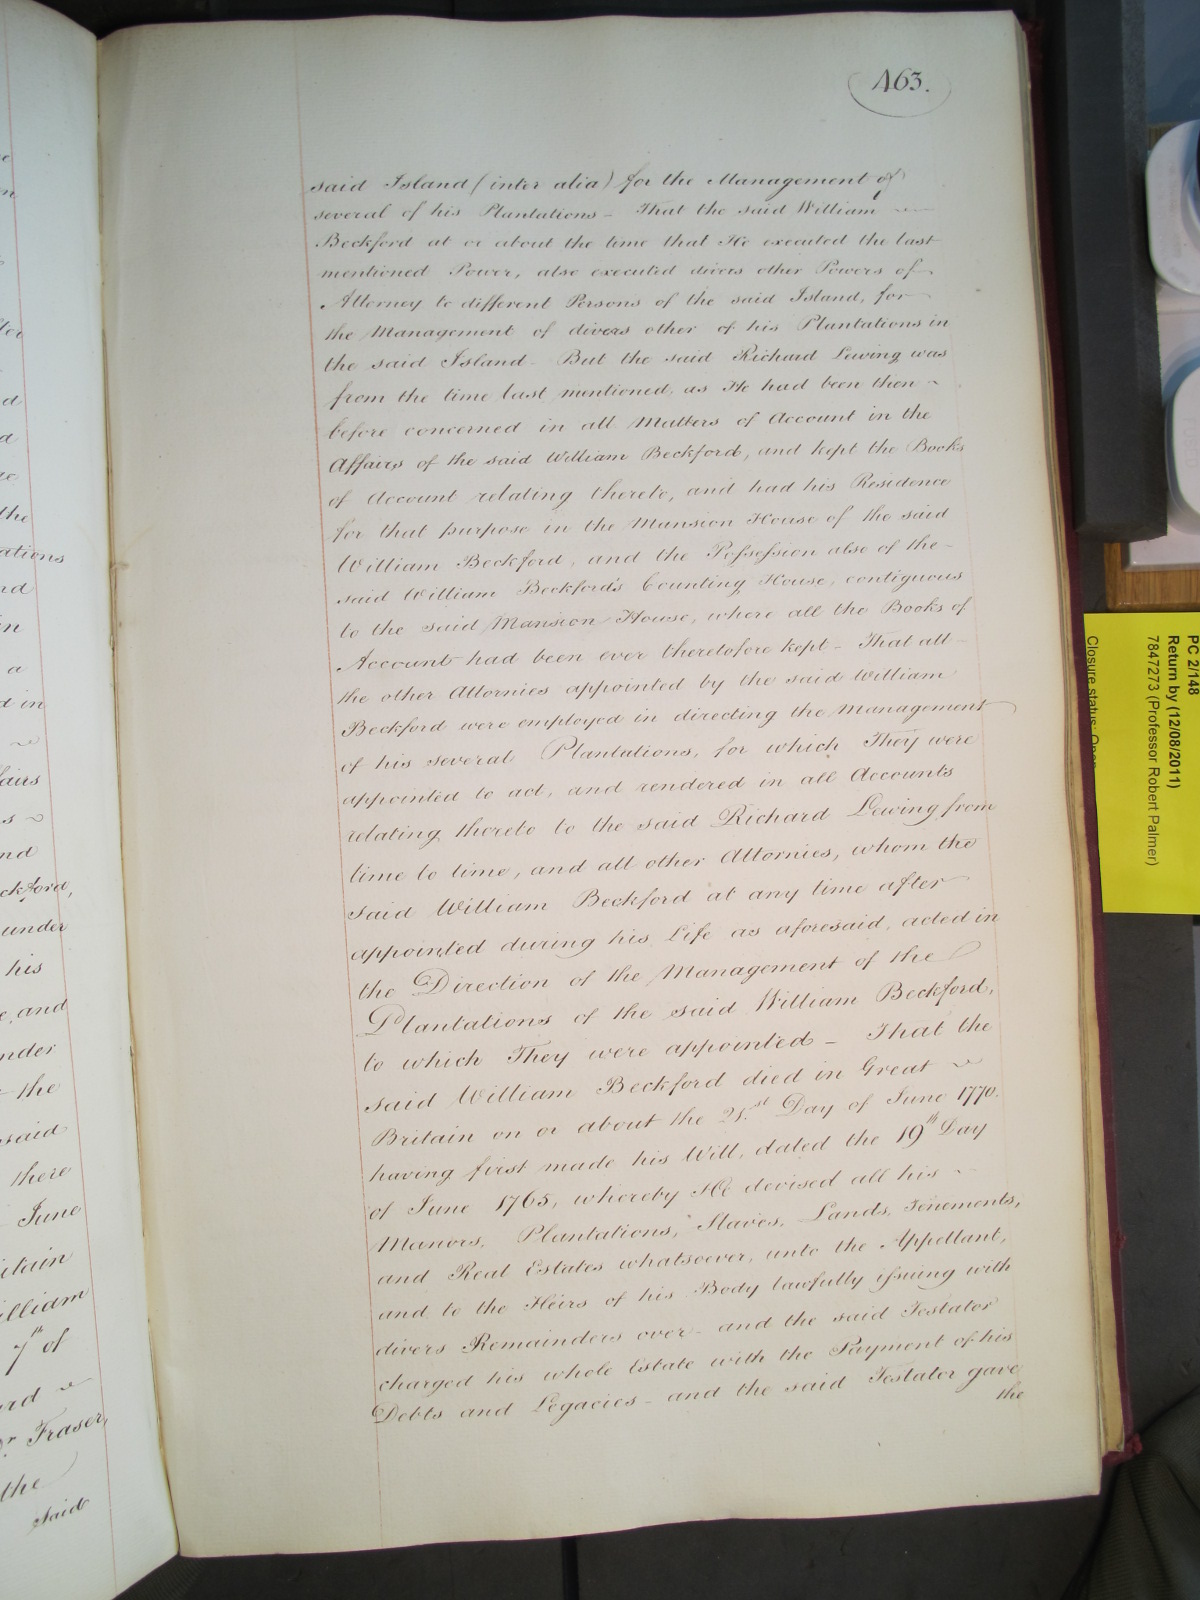 463.
said Island (inter alia) for the Management of
several of his Plantations - That the said William
Beckford at or about the time that He executed the last
mentioned Power, also executed divers other Powers of
Attorney to different Persons of the said Island, for
the Management of divers other of his Plantations in
the said Island - But the said Richard Lewing was
from the time last mentioned, as He had been then
before concerned in all Matters of Account in the
Affairs of the said William Beckford, and kept the Books
of Account relating thereto, and had his Residence
for that purpose in the Mansion House of the said
William Beckford, and the Possession also of the
said William Beckford's Counting House, contiguous
to the said Mansion House, where all the Books of
Account had been ever theretofore kept - That all
the other Attornies appointed by the said William
Beckford were employed in directing the Management
of his several Plantations, for which They were
appointed to act, and rendered in all Accounts
relating thereto to the said Richard Lewing from
time to time, and all other Attornies, whom the
said William Beckford at any time after
appointed during his Life as aforesaid, acted in
the Direction of the Management of the
Plantations of the said William Beckford,
to which They were appointed - That the
said William Beckford died in Great
Britain on or about the 21.st Day of June 1770.
having first made his Will, dated the 19th Day
of June 1765, whereby He devised all his
Manors, Plantations, Slaves, Lands, Tenements,
and Real Estates whatsoever, unto the Appellant,
and to the Heirs of his Body lawfully issuing with
divers Remainders over - and the said Testator
charged his whole Estate with the Payment of his
Debts and Legacies - and the said Testator gave
the
the
ations
in
a
d in
fairs
under
his
e, and
the
there
June
illiam
7th of
Fraser,
the
said
PC 2/148
Return by (12/08/2011)
7847273 (Professor Robert Palmer)
Closure status: Open